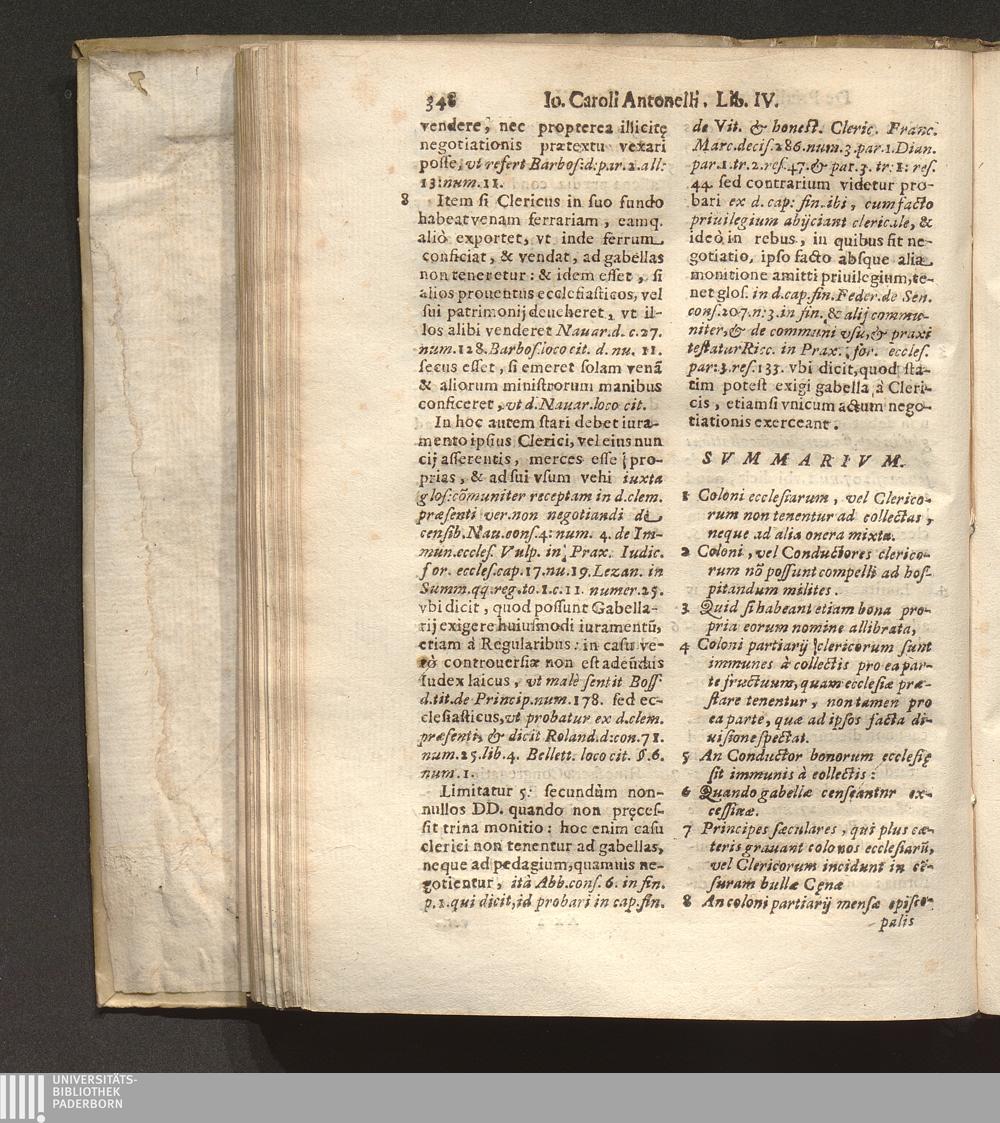 348 Io. Caroli Antonelli. Lib. IV.
vendere, nec propterea illicitę
negotiationis prætextu vexari
posse, vt refert Barbos. d. par. 2. all:
13: num. 11.
8 Item si Clericus in suo fundo
habeat venam ferrariam, eamq.
aliò exportet, vt inde ferrum
conficiat, & vendat, ad gabellas
non teneretur: & idem esset, si
alios prouentus ecclesiasticos, vel
sui patrimonij deueheret, vt il-
los alibi venderet Nauar. d. c. 27.
num. 128. Barbos. loco cit. d. nu. 11.
secus esset, si emeret solam venā
& aliorum ministrorum manibus
conficeret, vt d. Nauar. loco cit.
In hoc autem stari debet iura-
mento ipsius Clerici, vel eius nun
cij asserentis, merces esse pro-
prias, & ad sui vsum vehi iuxta
glos: cōmuniter receptam in d. clem.
præsenti ver. non negotiandi de
censib. Nau. cons. 4: num. 4. de Im-
mun. eccles. Vulp. in Prax. Iudic.
for. eccles. cap. 17. nu. 19. Lezan. in
Summ. qq. reg. to. 1. c. 11. numer. 25.
vbi dicit, quod possunt Gabella-
rij exigere huiusmodi iuramentū,
etiam à Regularibus: in casu ve-
rò controuersiæ non est adeūdus
Iudex laicus, vt malè sentit Boss.
d. tit. de Princip. num. 178. sed ec-
clesiasticus, vt probatur ex d. clem.
præsenti, & dicit Roland. d: con. 71.
num. 25. lib. 4. Bellett: loco cit. §. 6.
num. 1.
Limitatur 5: secundùm non-
nullos DD. quando non pręces-
sit trina monitio: hoc enim casu
clerici non tenentur ad gabellas,
neque ad pedagium, quamuis ne-
gotientur, ità Abb. cons. 6. in fin.
p. 1. qui dicit, id probari in cap. fin.
de Vit. & honest. Cleric. Franc.
Marc. decis. 286. num. 3. par. 1. Dian.
par. 1. tr. 2. res. 47. & par. 3. tr: 1: res.
44. sed contrarium videtur pro-
bari ex d. cap: fin. ibi, cum facto
priuilegium abijciant clericale, &
ideò in rebus, in quibus fit ne-
gotiatio, ipso facto absque alia
monitione amitti priuilegium, te-
net glos. in d. cap. fin. Feder. de Sen.
cons. 207. n: 3. in fin. & alij commu-
niter, & de communi vsu, & praxi
testatur Ricc. in Prax. for. eccles.
par: 3. res: 133. vbi dicit, quod sta-
tim potest exigi gabella à Cleri-
cis, etiamsi vnicum actum nego-
tiationis exerceant.
SVMMARIVM.
1 Coloni ecclesiarum, vel Clerico-
rum non tenentur ad collectas,
neque ad alia onera mixta.
2 Coloni, vel Conductores clerico-
rum nō possunt compelli ad hos-
pitandum milites.
3 Quid si habeant etiam bona pro-
pria eorum nomine allibrata,
4 Coloni partiarij clericorum sunt
immunes à collectis pro ea par-
te fructuum, quam ecclesiæ præ-
stare tenentur, non tamen pro
ea parte, quæ ad ipsos facta di-
uisione spectat.
5 An Conductor bonorum ecclesię
sit immunis à collectis:
6 Quando gabellæ censeantur ex-
cessiuæ.
7 Principes sæculares, qui plus cæ-
teris grauant colonos ecclesiarū,
vel Clericorum incidunt in cē-
suram bullæ Cęnæ
8 An coloni partiarij mensæ episco-
palis
UNIVERSITÄTS-
BIBLIOTHEK
PADERBORN